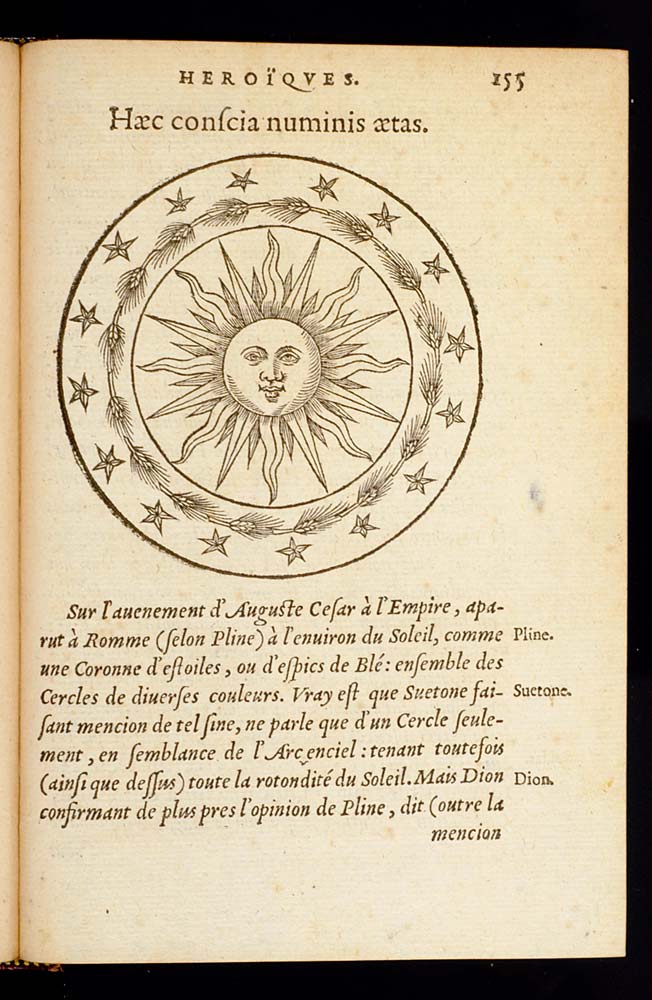 HEROÏQVES. 155
Hæc conſcia numinis ætas.
Sur l'auenement d'Auguſte Ceſar à l'Empire, apa-
rut à Romme (ſelon Pline) à l'enuiron du Soleil, comme Pline.
une Coronne d'eſtoiles, ou d'eſpics de Blé: enſemble des
Cercles de diuerſes couleurs. Vray eſt que Suetone fai- Suetone.
ſant mencion de tel ſine, ne parle que d'un Cercle ſeule-
ment, en ſemblance de l'Arc enciel: tenant toutefois
(ainſi que deſſus) toute la rotondité du Soleil. Mais Dion Dion.
confirmant de plus pres l'opinion de Pline, dit (outre la
mencion